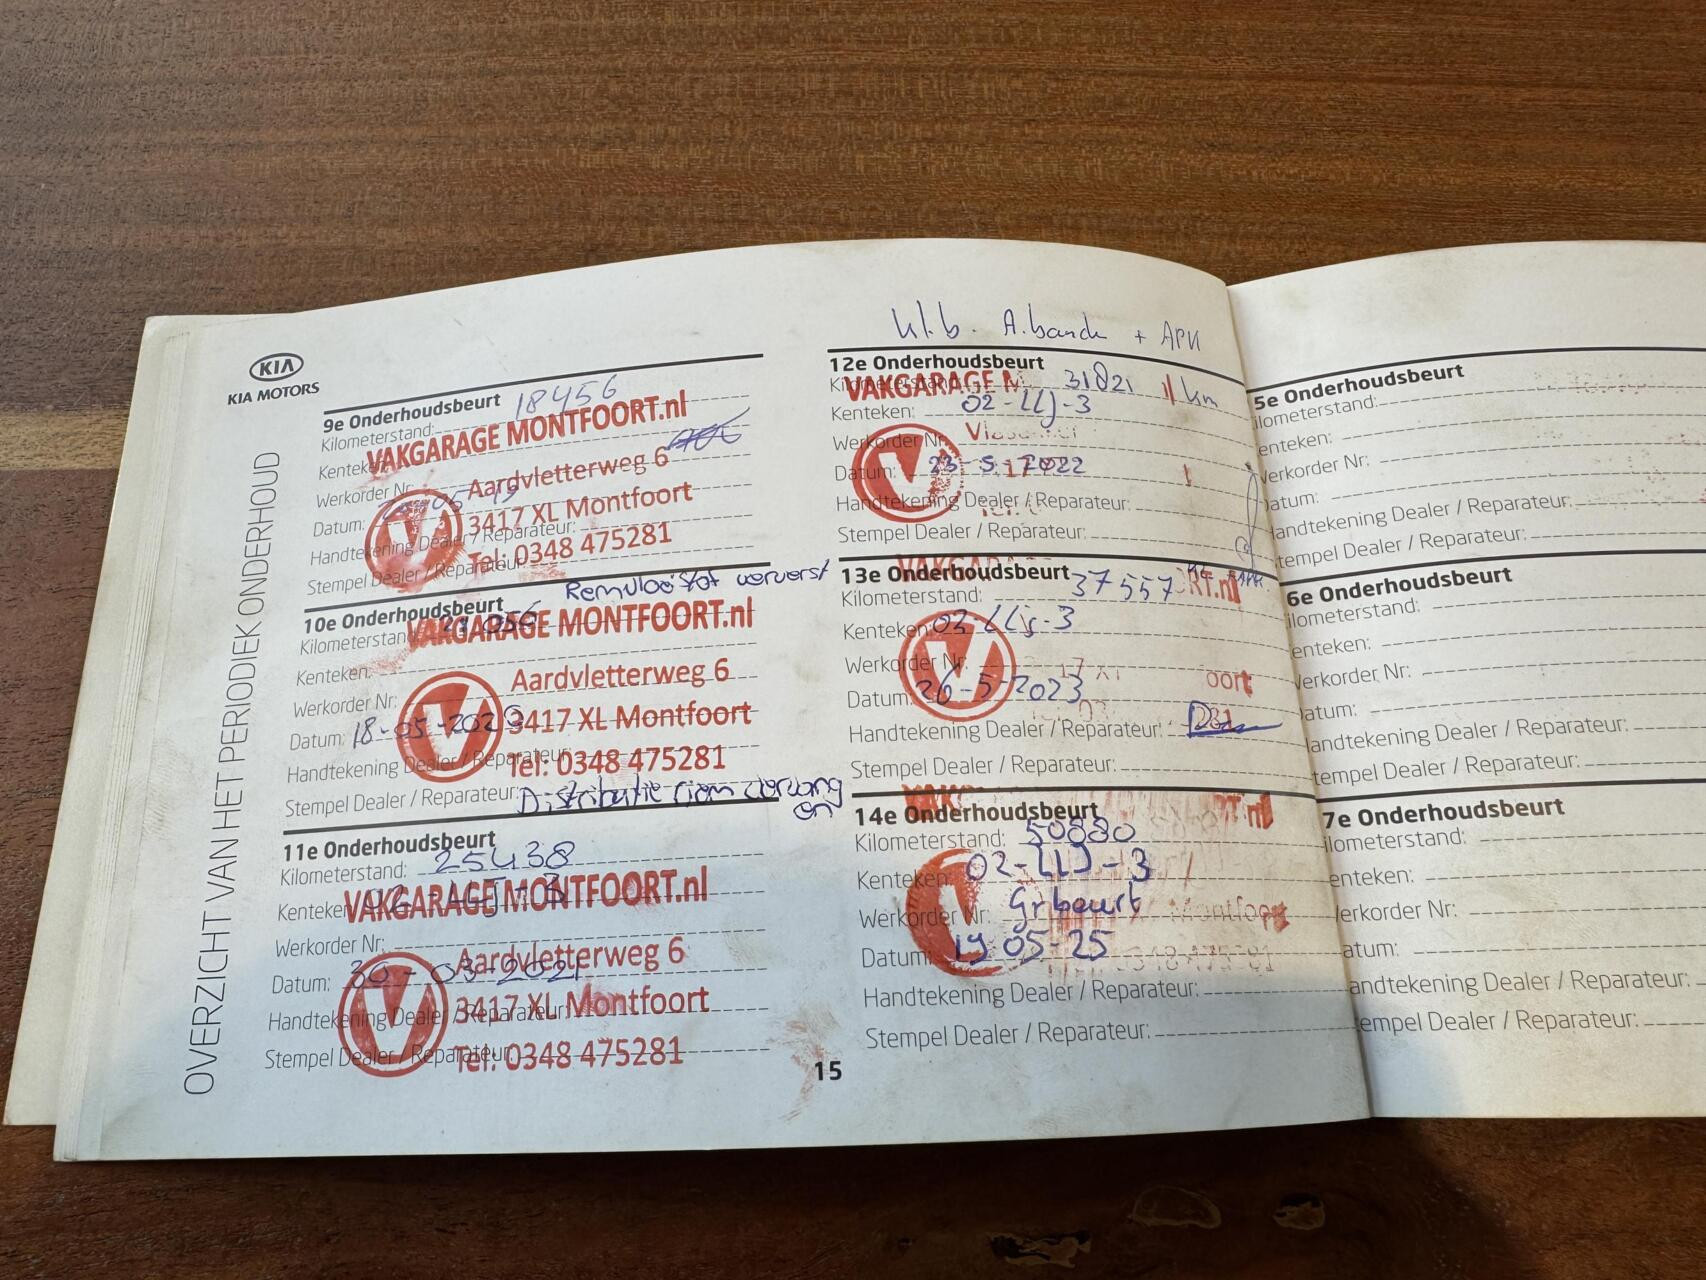 KIA
KIA MOTORS
OVERZICHT VAN HET PERIODIEK ONDERHOUD
9e Onderhoudsbeurt
Kilometerstand: 18456
VAKGARAGE MONTFOORT.nl
Kenteken:
Aardvletterweg 6
Werkorder Nr:
3417 XL Montfoort
Datum:
Handtekening Dealer / Reparateur:
Tel: 0348 475281
Stempel Dealer / Reparateur:
Remvloeistof ververst
10e Onderhoudsbeurt
Kilometerstand:
VAKGARAGE MONTFOORT.nl
Kenteken:
Aardvletterweg 6
Werkorder Nr:
3417 XL Montfoort
Datum: 18-05-2020
Handtekening Dealer / Reparateur:
Tel: 0348 475281
Stempel Dealer / Reparateur:
Distributie riem vervangen
11e Onderhoudsbeurt
Kilometerstand: 25438
VAKGARAGE MONTFOORT.nl
Kenteken: 02-LLJ-3
Werkorder Nr:
Aardvletterweg 6
Datum: 30-03-2021
3417 XL Montfoort
Handtekening Dealer / Reparateur:
Tel: 0348 475281
Stempel Dealer / Reparateur:
+ APK
12e Onderhoudsbeurt
Kilometerstand: 31821 km
VAKGARAGE M
Kenteken: 02-LLJ-3
Werkorder Nr:
Datum: 23-5-2022
Handtekening Dealer / Reparateur:
Stempel Dealer / Reparateur:
13e Onderhoudsbeurt
Kilometerstand: 37557
Kenteken: 02-LLJ-3
Werkorder Nr:
Datum: 26-5-2023
Handtekening Dealer / Reparateur:
Stempel Dealer / Reparateur:
14e Onderhoudsbeurt
Kilometerstand: 50880
Kenteken: 02-LLJ-3
Werkorder Nr: Gr beurt
Montfoort
Datum: 19-05-25
Handtekening Dealer / Reparateur:
Stempel Dealer / Reparateur:
15
5e Onderhoudsbeurt
ilometerstand:
enteken:
erkorder Nr:
atum:
andtekening Dealer / Reparateur:
tempel Dealer / Reparateur:
6e Onderhoudsbeurt
ilometerstand:
enteken:
erkorder Nr:
atum:
andtekening Dealer / Reparateur:
tempel Dealer / Reparateur:
7e Onderhoudsbeurt
ilometerstand:
enteken:
erkorder Nr:
atum:
andtekening Dealer / Reparateur:
empel Dealer / Reparateur: